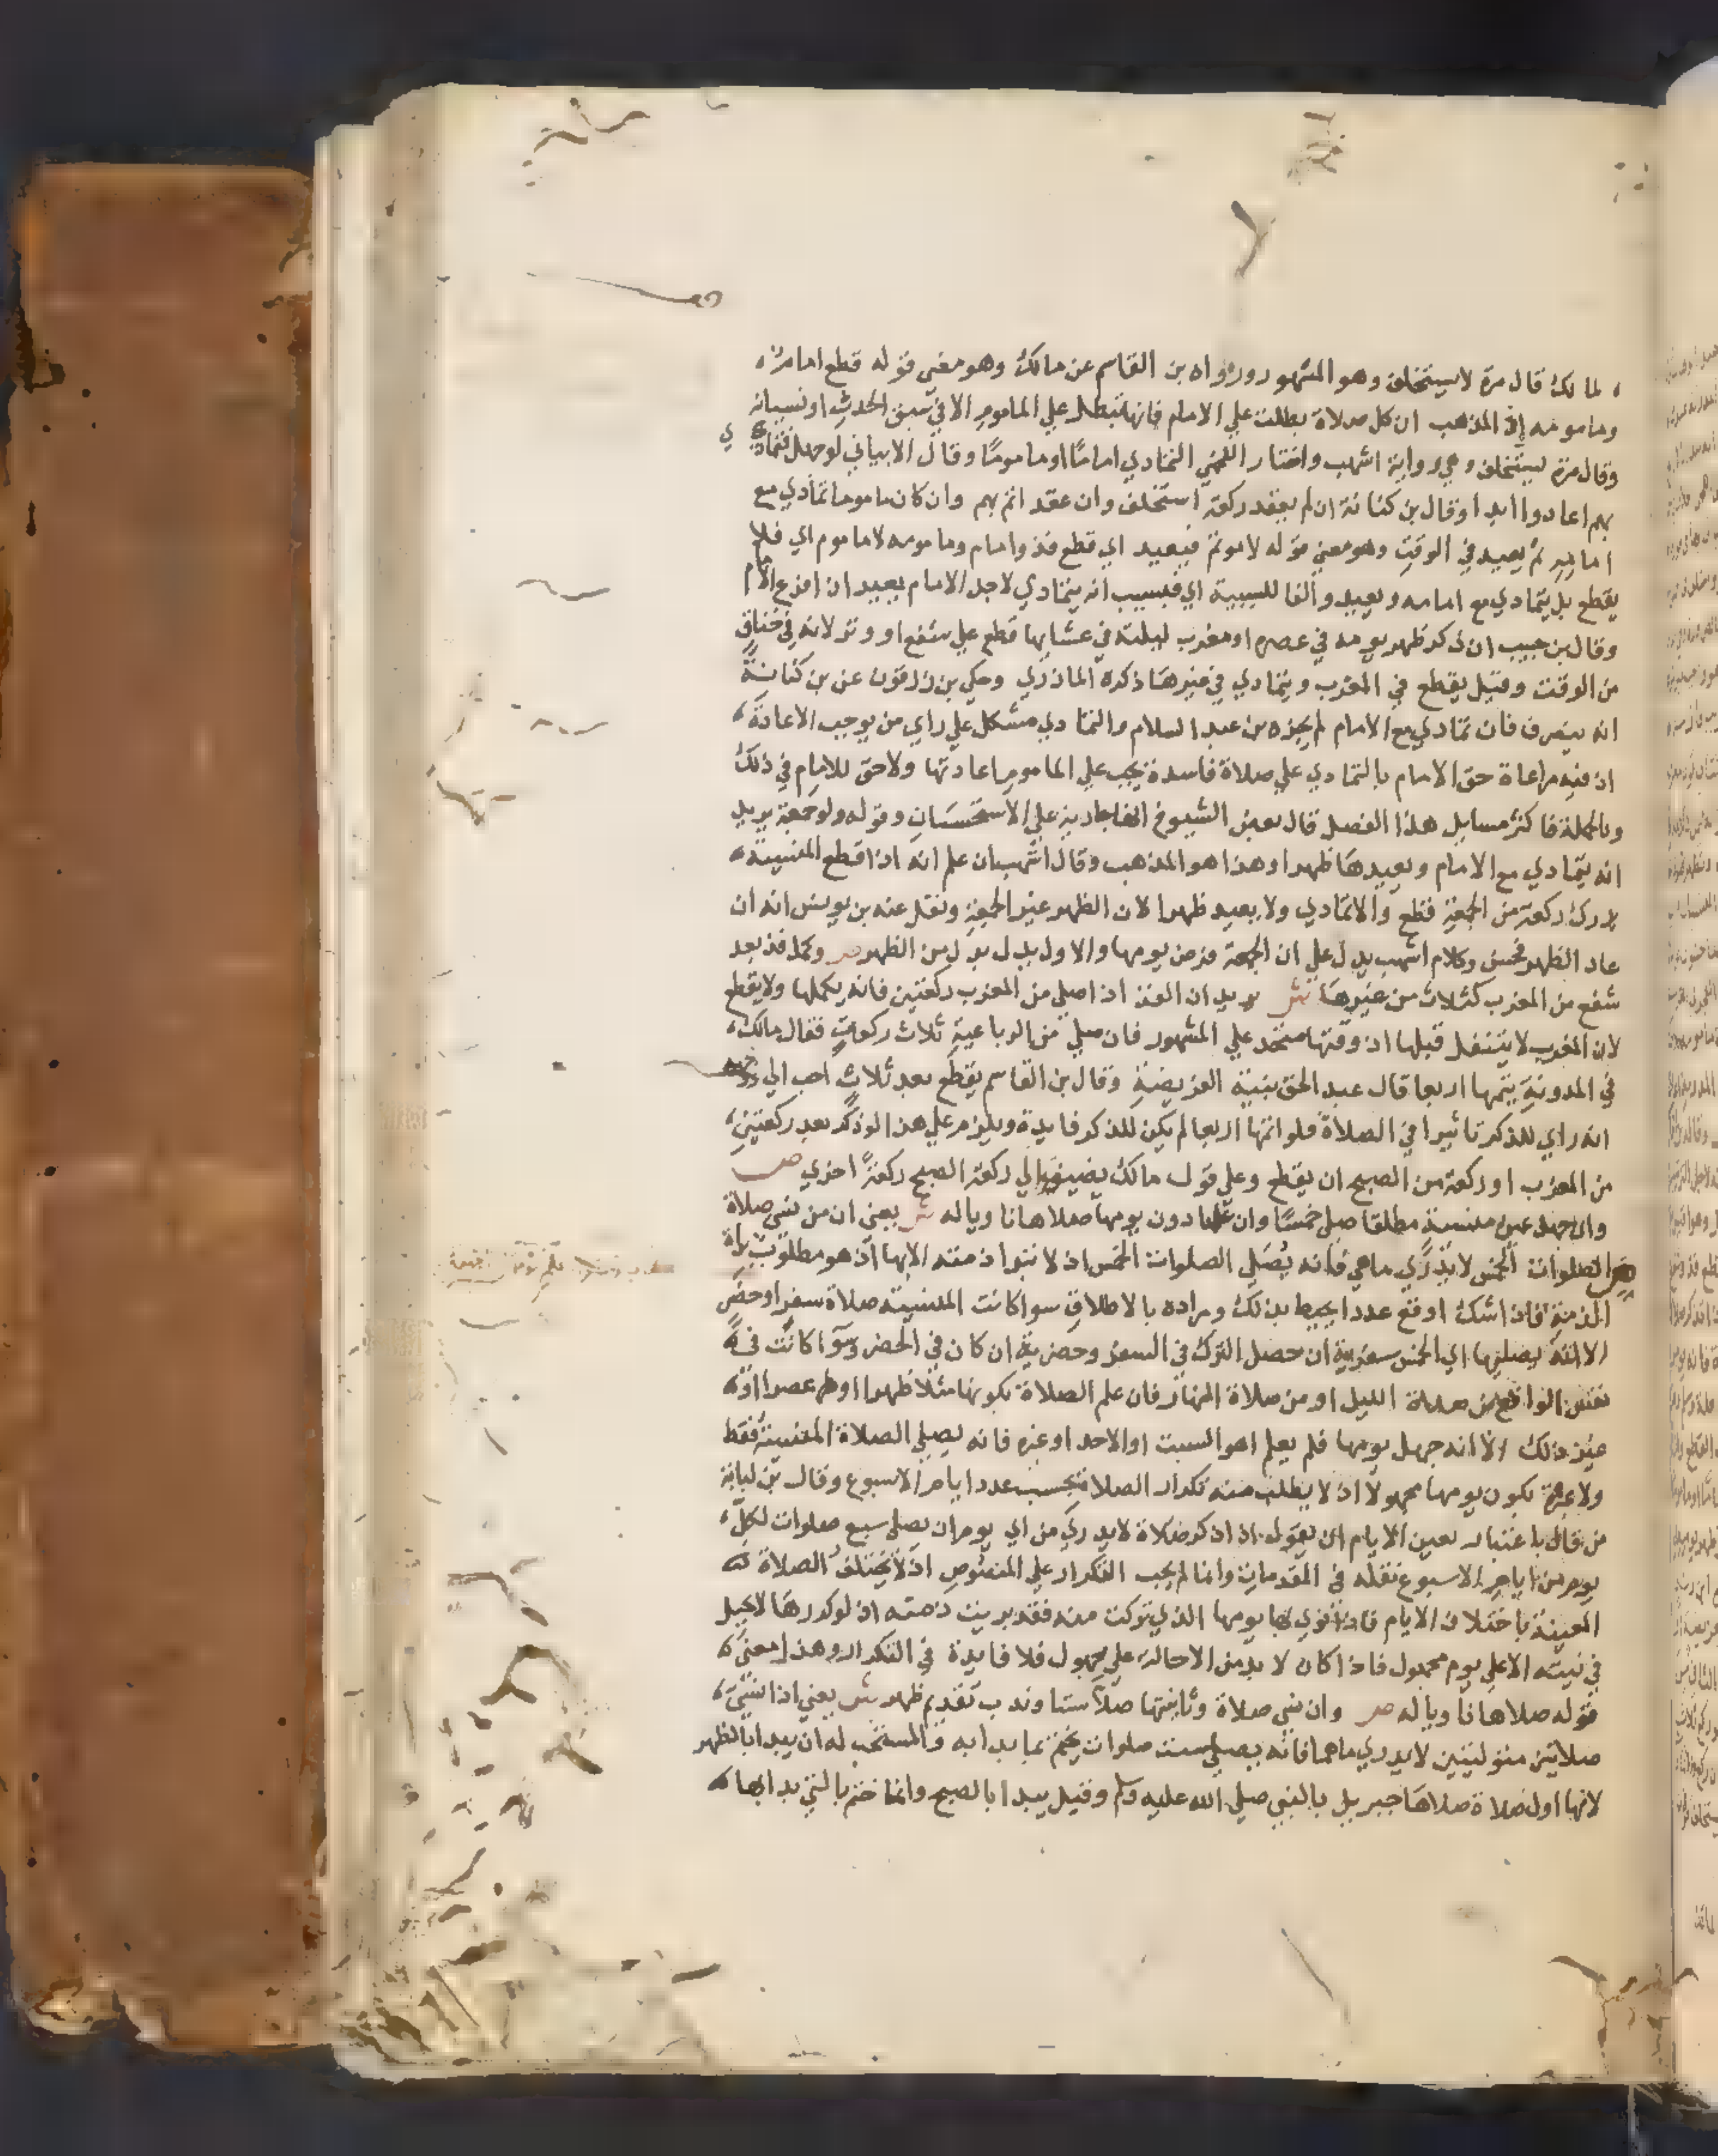 لمالك قال مرة لا يستخلف وهو المشهور ورواه بن القاسم عن مالك وهو معنى قوله قطع امام
ومامومه اذ المذهب ان كل صلاة بطلت علي الامام فانها تبطل علي الماموم الا في سبق الحدث او نسيانه
وقال مرة يستخلف وهي رواية اشهب واختار اللخمي التمادي اماما او ماموما وقال الابياني لو جهل فتمادي
بهم اعادوا ابدا وقال بن كنانة ان لم يعقد ركعة استخلف وان عقد اتم بهم وان كان ماموما تمادي مع
امامه ثم يعيد في الوقت وهو معني قوله لا موتم فيعيد اي قطع فذ وامام وماموم لا ماموم اي فلا
يقطع بل يتمادي مع امامه ويعيد والفا للسببية اي فبسبب انه يتمادي لاجل الامام يعيد ان افرغ الامام
وقال بن حبيب ان ذكر ظهر يومه في عصره او مغرب ليلته في عشايها قطع علي شفع او وتر لانه في خناق
من الوقت وقيل يقطع في المغرب ويتمادي في غيرها ذكره المازري وحكي بن زرقون عن بن كنانة
انه ينصرف فان تمادي مع الامام لم يجزه بن عبد السلام والتمادي مشكل علي راي من يوجب الاعادة
اذ فيه مراعاة حق الامام بالتمادي علي صلاة فاسدة يجب علي الماموم اعادتها ولا حق للامام في ذلك
وبالجملة فاكثر مسايل هذا الفصل قال بعض الشيوخ انها جارية علي الاستحسان وقوله ولو جمعة يريد
انه يتمادي مع الامام ويعيدها ظهرا وهذا هو المذهب وقال اشهب ان علم انه اذا قطع المنسية
يدرك ركعة من الجمعة قطع والا تمادي ولا يعيد ظهرا لان الظهر غير الجمعة ونقل عنه بن يونس انه ان
عاد الظهر فحسن وكلام اشهب يدل علي ان الجمعة فرض يومها والاول يدل بدل من الظهر ص وكمل فذ بعد
شفع من المغرب كثلاث من غيرها ش يريد ان الفذ اذا صلي من المغرب ركعتين فانه يكملها ولا يقطع
لان المغرب لا يتنفل قبلها اذ وقتها متحد علي المشهور فان صلي من الرباعية ثلاث ركعات فقال مالك
في المدونة يتمها اربعا قال عبد الحق بنية الفريضة وقال بن القاسم يقطع بعد ثلاث احب الي
انه راي للذكر تاثيرا في الصلاة فلو اتمها اربعا لم يكن للذكر فايدة ويلزم علي هذا لو ذكر بعد ركعتين
من المغرب او ركعة من الصبح ان يقطع وعلي قول مالك يضيف الي ركعة الصبح ركعة اخري ص
وان جهل عين منسية مطلقا صلي خمسا وان علمها دون يومها صلاها ناويا له ش يعني ان من نسي صلاة
من الصلوات الخمس لا يدري ما هي فانه يصلي الصلوات الخمس اذ لا تبرا ذمته الا بها اذ هو مطلوب ببراة
الذمة فاذا شك اوقع عددا يحيط بذلك ومراده بالاطلاق سوا كانت المنسية صلاة سفر او حضر
الا انه يصليها اي الخمس سفرية ان حصل الترك في السفر وحضرية ان كان في الحضر وسوا كانت في
نفس الواقع من صلاة الليل او من صلاة النهار فان علم الصلاة بكونها مثلا ظهرا او عصرا او
غير ذلك الا انه جهل يومها فلم يعلم اهو السبت او الاحد او غيره فانه يصلي الصلاة المنسية فقط
ولا عبرة بكون يومها مجهولا اذ لا يطلب منه تكرار الصلاة بحسب عدد ايام الاسبوع وقال بن لبابة
من قال باعتبار تعيين الايام ان يقول اذا ذكر صلاة لا يدري من اي يوم ان يصلي سبع صلوات لكل
يوم من ايام الاسبوع نقله في المقدمات وانما لم يجب التكرار علي المنصوص اذ لا يختلف الصلاة
المعينة باختلاف الايام فاذا نوي بها يومها الذي تركت منه فقد برئت ذمته اذ لو كررها لا يحيل
في نيته الا علي يوم مجهول فاذا كان لا بد من الاحالة علي مجهول فلا فايدة في التكرار وهذا معنى
قوله صلاها ناويا له ص وان نسي صلاة وثانيتها صلا ستا وندب تقديم ظهر ش يعني اذا نسي
صلاتين متواليتين لا يدري ما هما فانه يصلي ست صلوات يختم بما بدا به والمستحب له ان يبدا بالظهر
لانها اول صلاة صلاها جبريل بالنبي صلي الله عليه وسلم وقيل يبدا بالصبح وانما ختم بالتي بدا بها